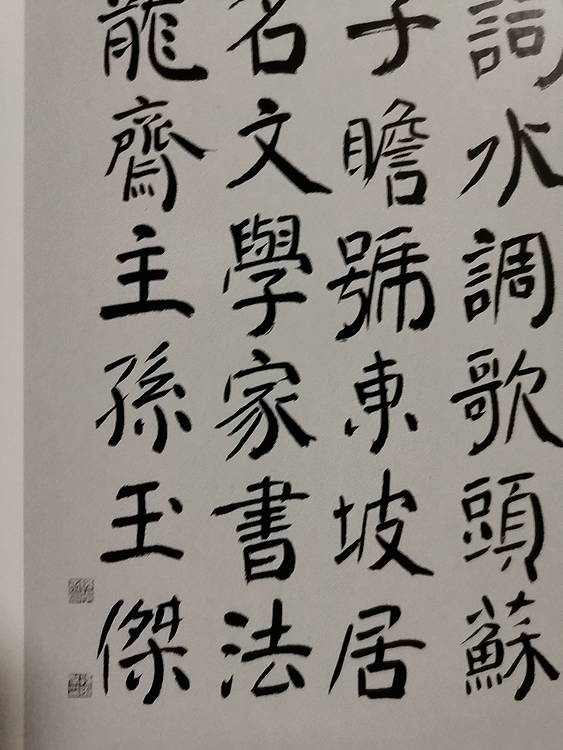 詞水調歌頭蘇
子瞻號東坡居
名文學家書法
龍齋主孫玉傑